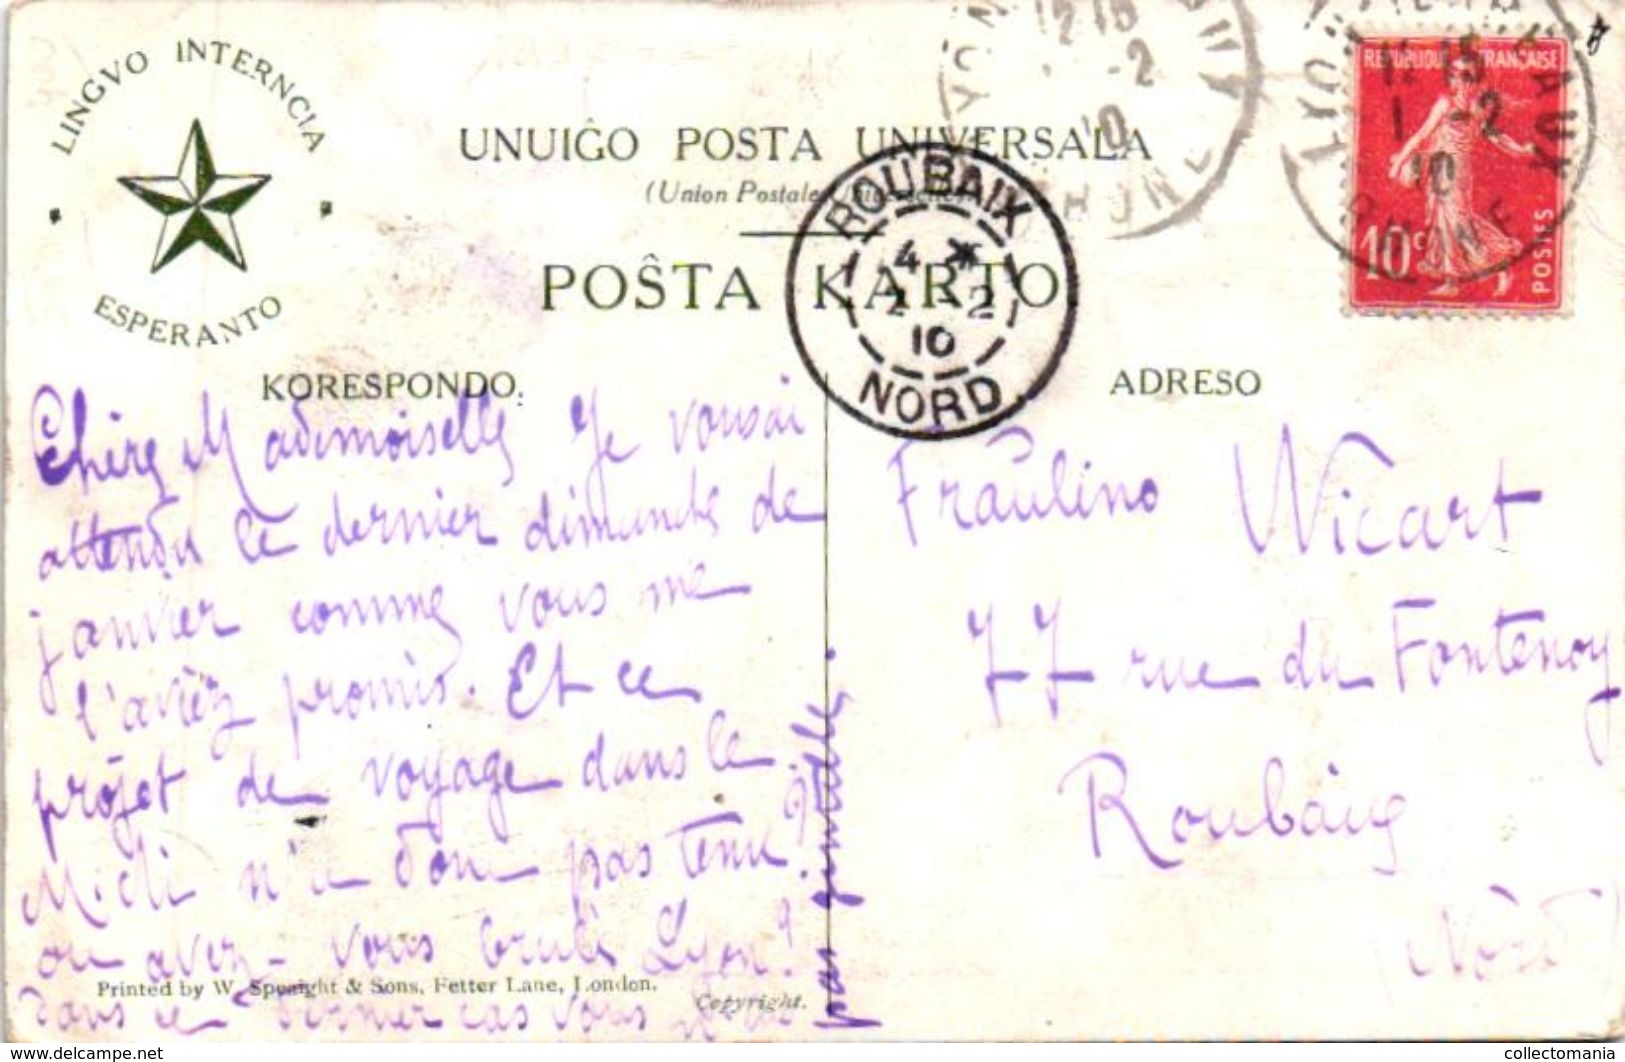 LINGVO INTERNCIA
ESPERANTO
UNUIĜO POSTA UNIVERSALA
(Union Postale
POŜTA KARTO
KORESPONDO.
ADRESO
REPUBLIQUE FRANÇAISE
10c
POSTES
12 15
-2
10
1 -2
10
RHONE
ROUBAIX
4 *
2 -2
10
NORD
Chère Mademoiselle Je vous ai
attendu le dernier dimanche de
janvier comme vous me
l'aviez promis. Et ce
projet de voyage dans le
Midi n'a donc pas tenu?
ou avez-vous brulé Lyon?
dans ce dernier cas vous
pas gentille.
Fraŭlino Wicart
77 rue du Fontenoy
Roubaix
Nord
Printed by W. Speaight & Sons, Fetter Lane, London.
Copyright.
https://www.delcampe.net
collectomania